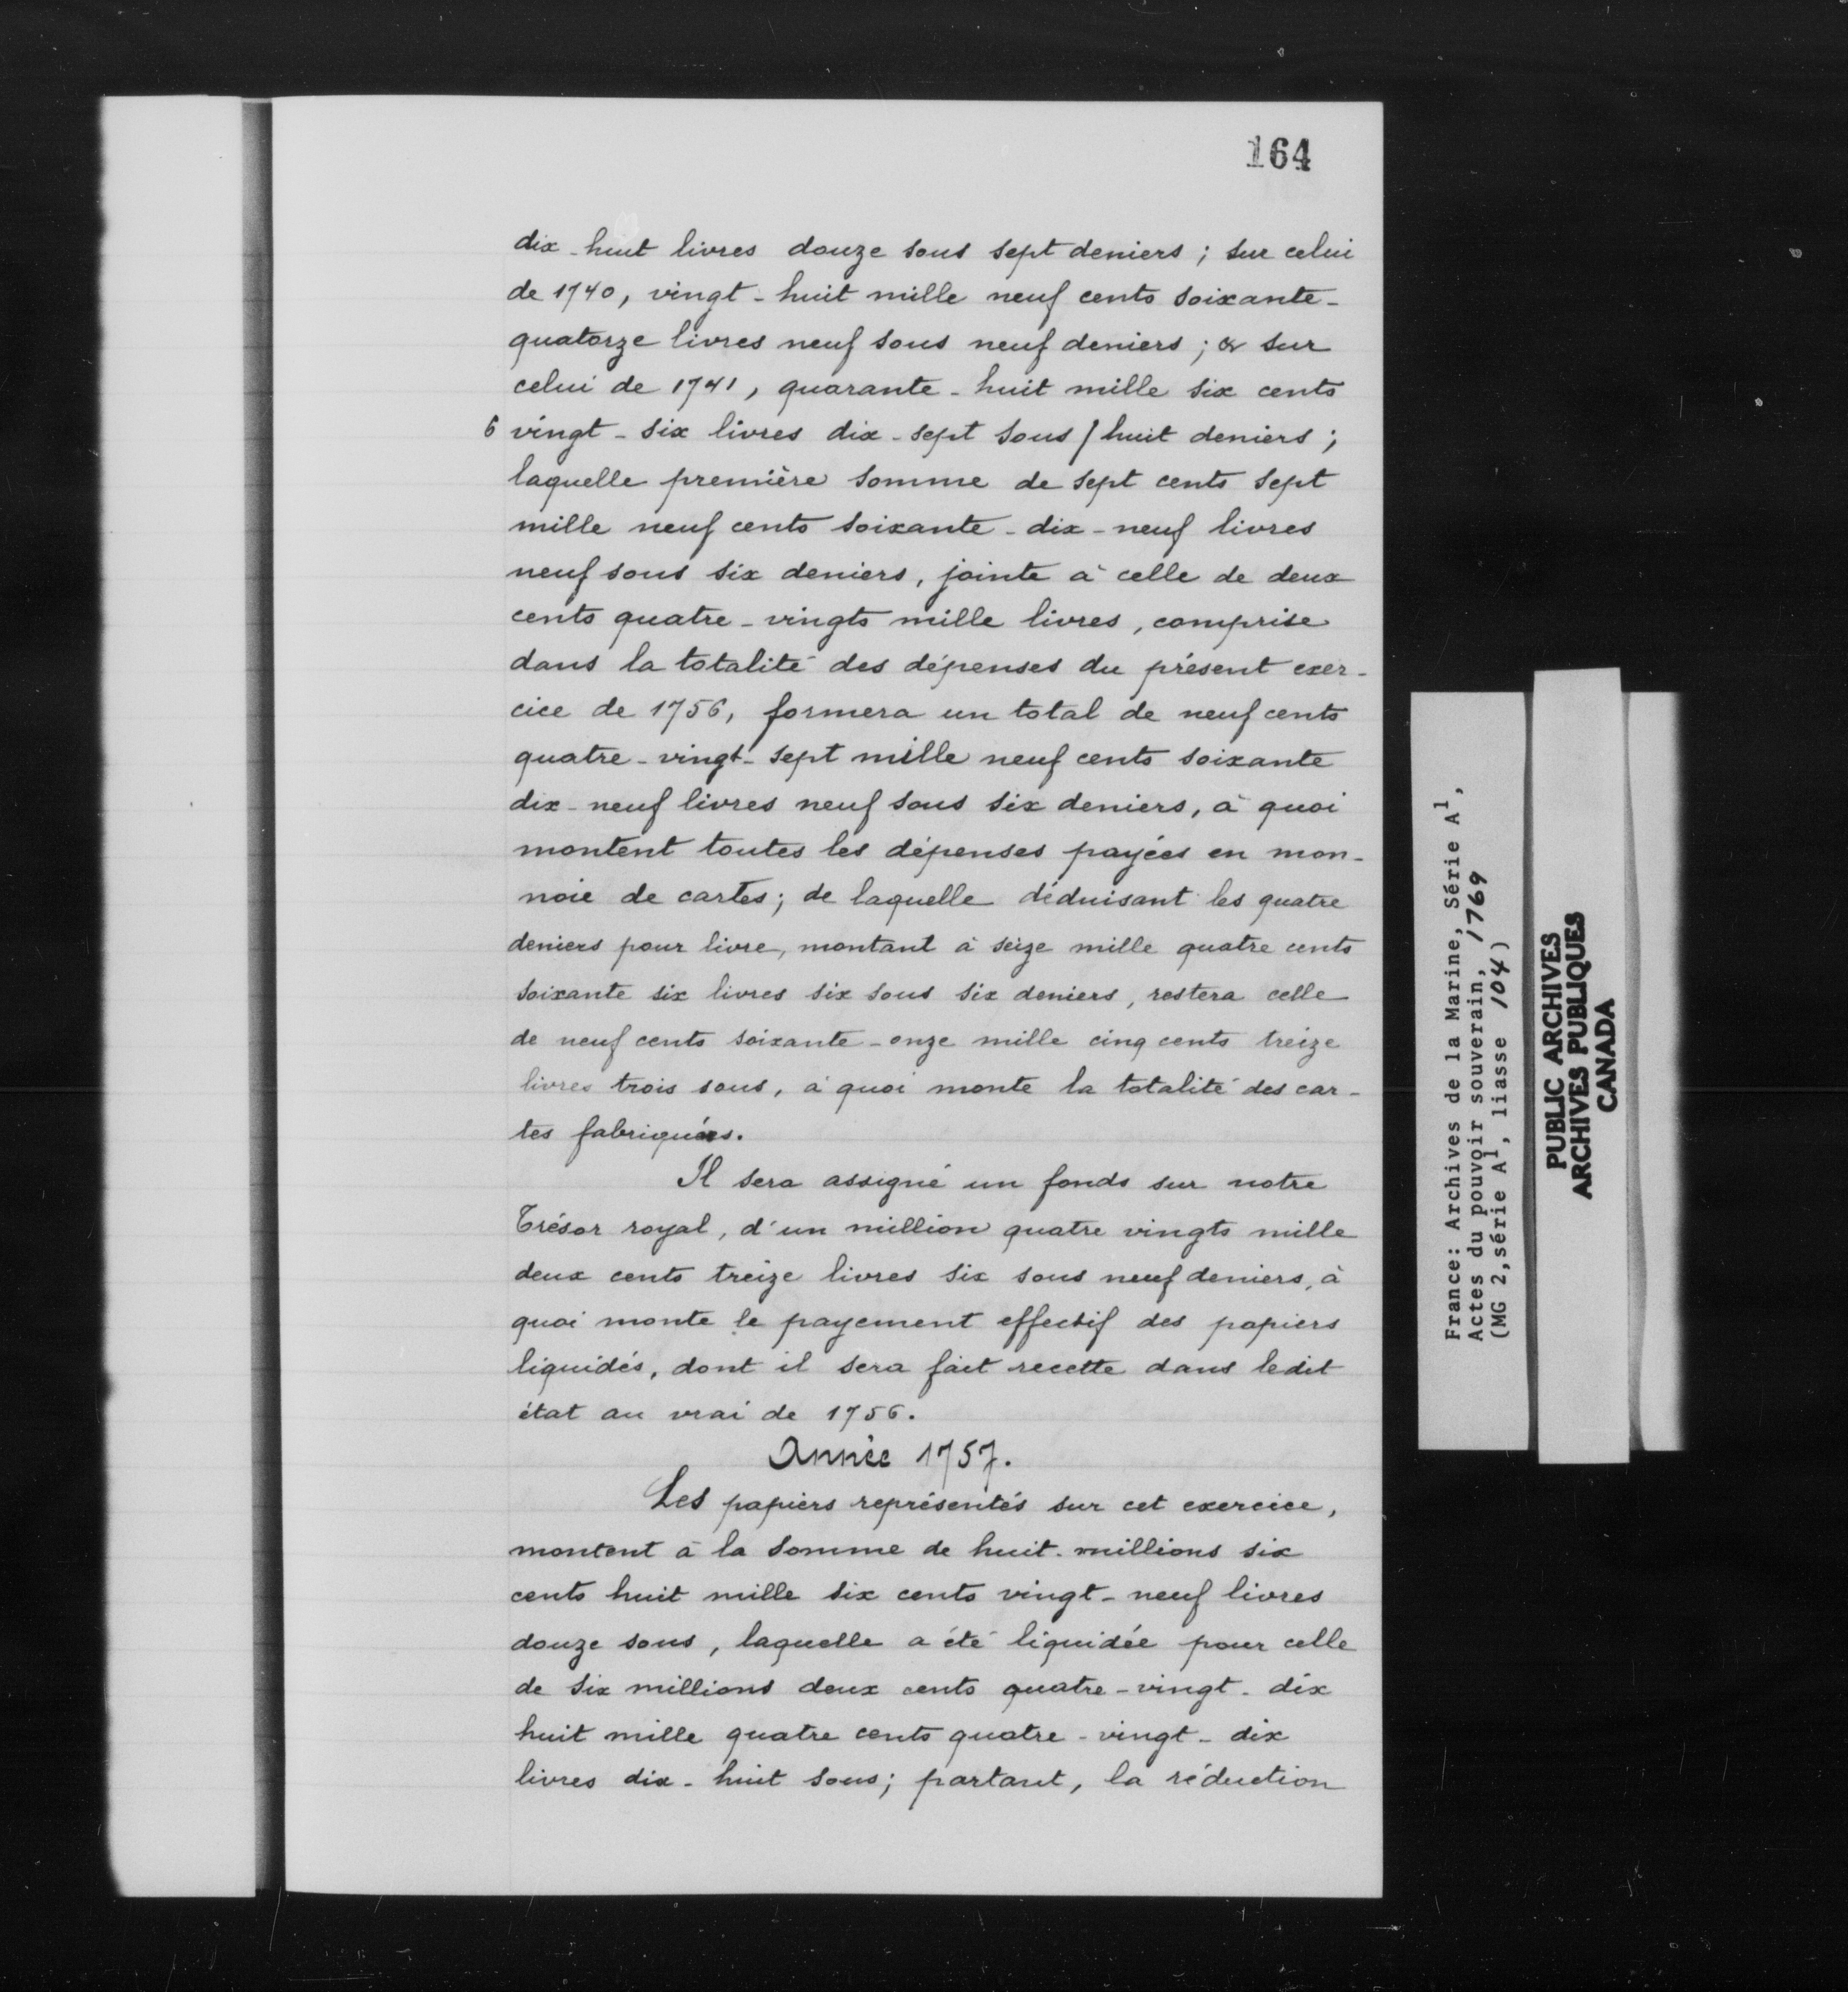 164
dix-huit livres douze sous sept deniers ; sur celui
de 1740, vingt-huit mille neuf cents soixante-
quatorze livres neuf sous neuf deniers ; & sur
celui de 1741, quarante-huit mille six cents
6 vingt-six livres dix-sept sous / huit deniers ;
laquelle première somme de sept cents sept
mille neuf cents soixante-dix-neuf livres
neuf sous six deniers, jointe à celle de deux
cents quatre-vingts mille livres, comprise
dans la totalité des dépenses du présent exer-
cice de 1756, formera un total de neuf cents
quatre-vingt-sept mille neuf cents soixante
dix-neuf livres neuf sous six deniers, à quoi
montent toutes les dépenses payées en mon-
noie de cartes ; de laquelle déduisant les quatre
deniers pour livre, montant à seize mille quatre cents
soixante six livres six sous six deniers, restera celle
de neuf cents soixante-onze mille cinq cents treize
livres trois sous, à quoi monte la totalité des car-
tes fabriquées.
Il sera assigné un fonds sur notre
Trésor royal, d'un million quatre vingts mille
deux cents treize livres six sous neuf deniers, à
quoi monte le payement effectif des papiers
liquidés, dont il sera fait recette dans ledit
état au vrai de 1756.
Année 1757.
Les papiers représentés sur cet exercice,
montent à la somme de huit millions six
cents huit mille six cents vingt-neuf livres
douze sous, laquelle a été liquidée pour celle
de six millions deux cents quatre-vingt-dix
huit mille quatre cents quatre-vingt-dix
livres dix-huit sous ; partant, la réduction
France: Archives de la Marine, Série A1,
Actes du pouvoir souverain, 1769
(MG 2, série A1, liasse 104)
PUBLIC ARCHIVES
ARCHIVES PUBLIQUES
CANADA